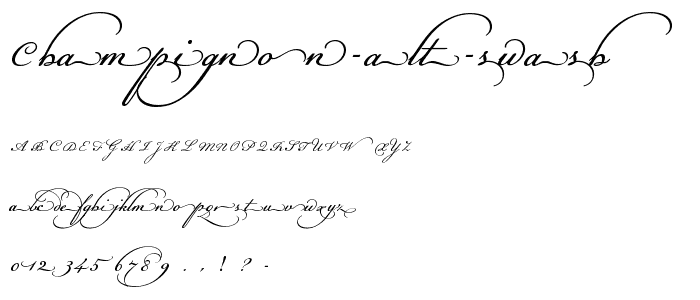 Champignon-alt-swash
ABCDEFGHIJKLMNOPQRSTUVWXYZ
abcdefghijklmnopqrstuvwxyz
0123456789.,!?-